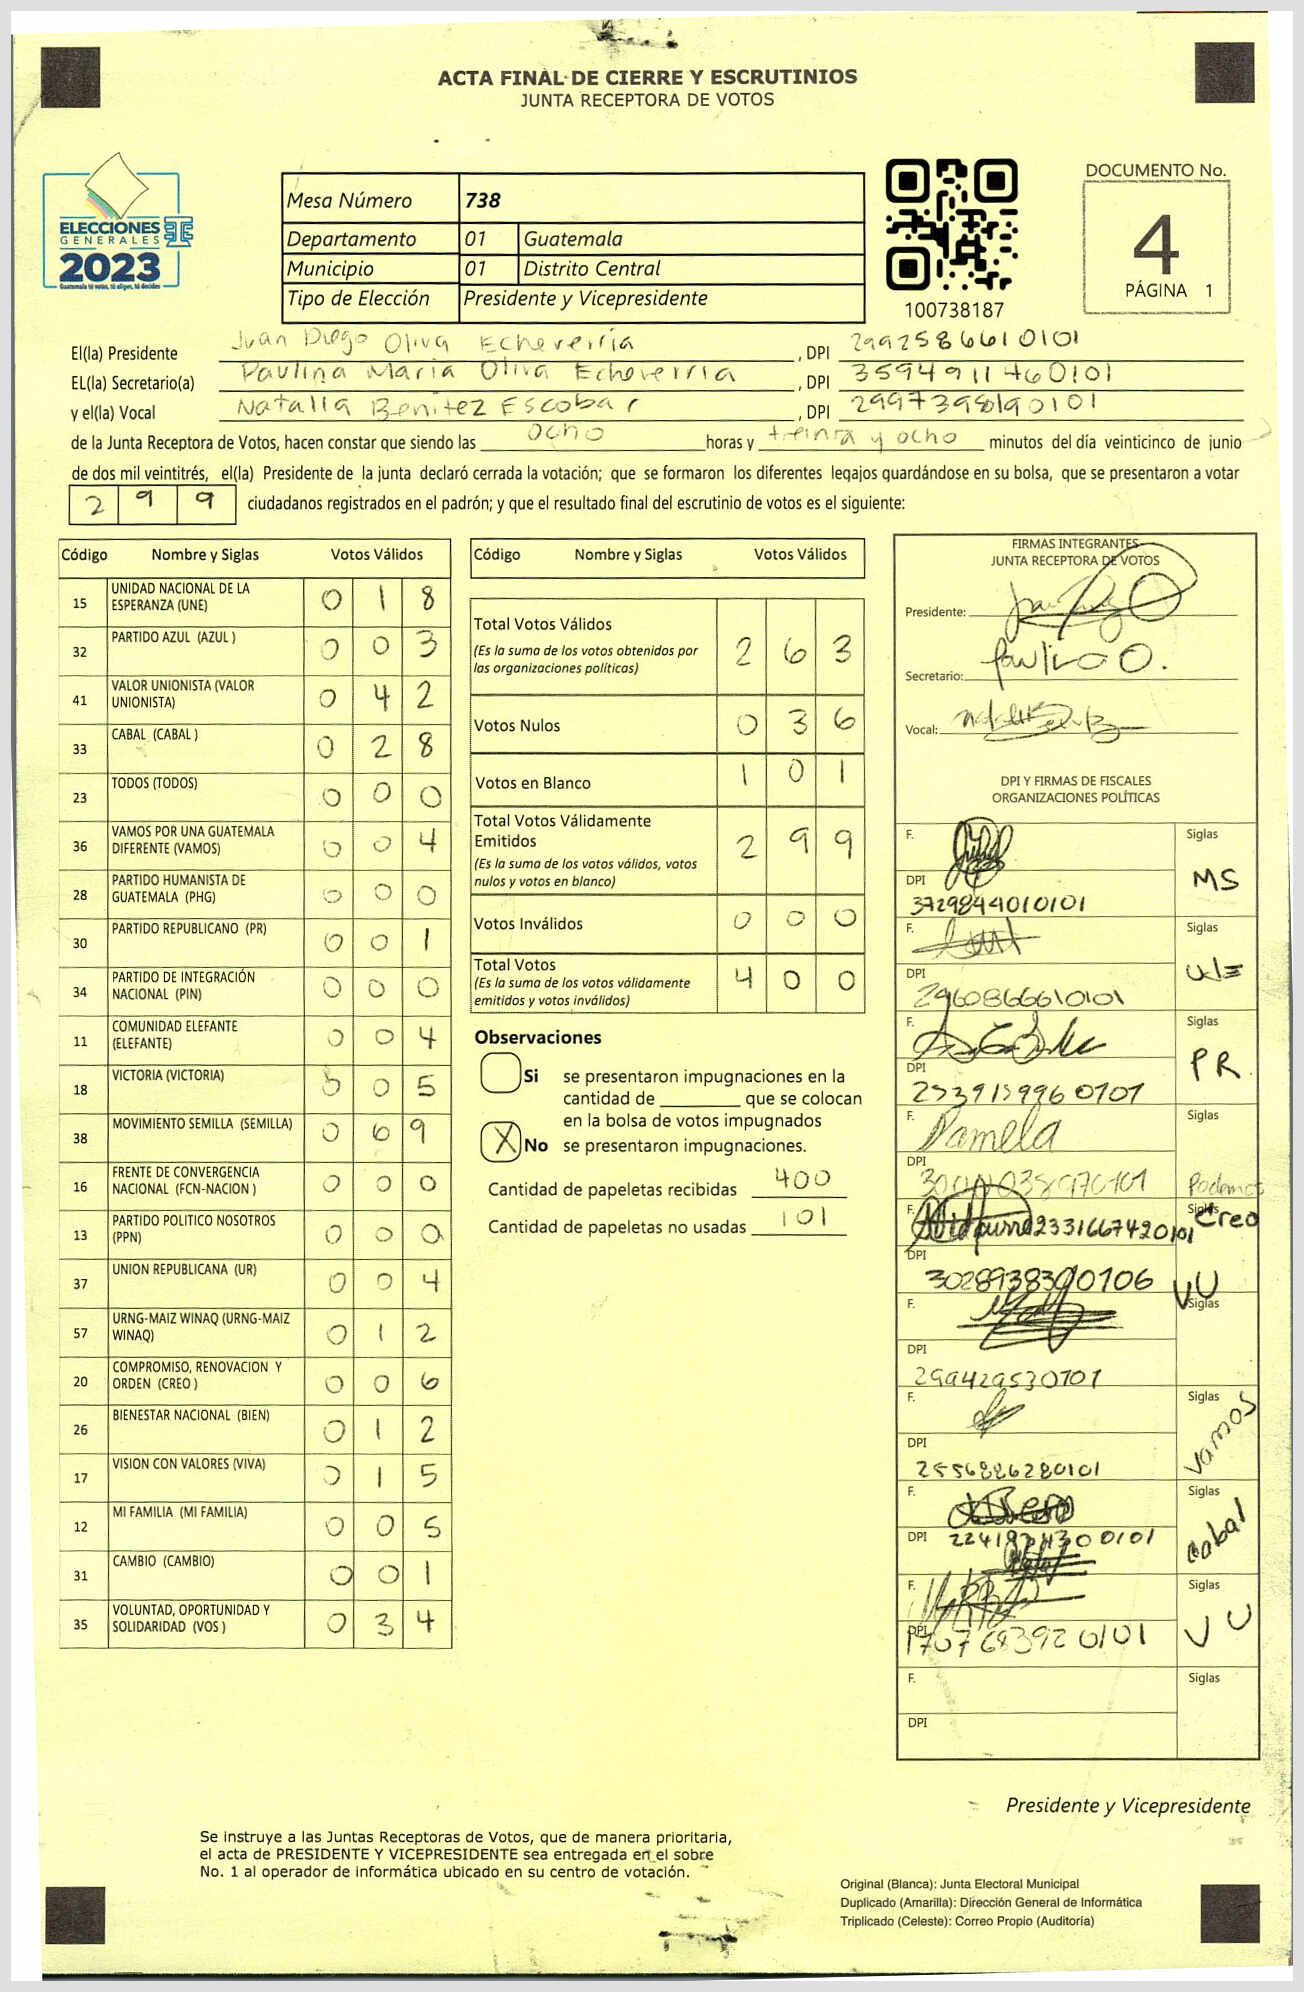 ACTA FINAL DE CIERRE Y ESCRUTINIOS
JUNTA RECEPTORA DE VOTOS
ELECCIONES
GENERALES
2023
Guatemala tú votas, tú eliges, tú decides
Mesa Número 738
Departamento 01 Guatemala
Municipio 01 Distrito Central
Tipo de Elección Presidente y Vicepresidente
100738187
DOCUMENTO No.
4
PÁGINA 1
El(la) Presidente Juan Diego Oliva Echeverría , DPI 2992586610101
EL(la) Secretario(a) Paulina María Oliva Echeverria , DPI 3594911460101
y el(la) Vocal Natalia Benitez Escobar , DPI 2997398190101
de la Junta Receptora de Votos, hacen constar que siendo las ocho horas y treinta y ocho minutos del día veinticinco de junio
de dos mil veintitrés, el(la) Presidente de la junta declaró cerrada la votación; que se formaron los diferentes legajos guardándose en su bolsa, que se presentaron a votar
2 9 9 ciudadanos registrados en el padrón; y que el resultado final del escrutinio de votos es el siguiente:
Código Nombre y Siglas Votos Válidos
15 UNIDAD NACIONAL DE LA
ESPERANZA (UNE) 0 1 8
32 PARTIDO AZUL (AZUL ) 0 0 3
41 VALOR UNIONISTA (VALOR
UNIONISTA) 0 4 2
33 CABAL (CABAL ) 0 2 8
23 TODOS (TODOS) 0 0 0
36 VAMOS POR UNA GUATEMALA
DIFERENTE (VAMOS) 0 0 4
28 PARTIDO HUMANISTA DE
GUATEMALA (PHG) 0 0 0
30 PARTIDO REPUBLICANO (PR) 0 0 1
34 PARTIDO DE INTEGRACIÓN
NACIONAL (PIN) 0 0 0
11 COMUNIDAD ELEFANTE
(ELEFANTE) 0 0 4
18 VICTORIA (VICTORIA) 0 0 5
38 MOVIMIENTO SEMILLA (SEMILLA) 0 6 9
16 FRENTE DE CONVERGENCIA
NACIONAL (FCN-NACION ) 0 0 0
13 PARTIDO POLITICO NOSOTROS
(PPN) 0 0 0
37 UNION REPUBLICANA (UR) 0 0 4
57 URNG-MAIZ WINAQ (URNG-MAIZ
WINAQ) 0 1 2
20 COMPROMISO, RENOVACION Y
ORDEN (CREO ) 0 0 6
26 BIENESTAR NACIONAL (BIEN) 0 1 2
17 VISION CON VALORES (VIVA) 0 1 5
12 MI FAMILIA (MI FAMILIA) 0 0 5
31 CAMBIO (CAMBIO) 0 0 1
35 VOLUNTAD, OPORTUNIDAD Y
SOLIDARIDAD (VOS ) 0 3 4
Código Nombre y Siglas Votos Válidos
Total Votos Válidos
(Es la suma de los votos obtenidos por
las organizaciones políticas) 2 6 3
Votos Nulos 0 3 6
Votos en Blanco 1 0 1
Total Votos Válidamente
Emitidos 2 9 9
(Es la suma de los votos válidos, votos
nulos y votos en blanco)
Votos Inválidos 0 0 0
Total Votos
(Es la suma de los votos válidamente
emitidos y votos inválidos) 4 0 0
Observaciones
Si se presentaron impugnaciones en la
cantidad de ________ que se colocan
en la bolsa de votos impugnados
X No se presentaron impugnaciones.
Cantidad de papeletas recibidas 400
Cantidad de papeletas no usadas 101
FIRMAS INTEGRANTES
JUNTA RECEPTORA DE VOTOS
Presidente:
Secretario: Paulina O.
Vocal:
DPI Y FIRMAS DE FISCALES
ORGANIZACIONES POLÍTICAS
F. Siglas
MS
DPI
3729844010101
F. Siglas
DPI
2960866610101
F. Siglas
PR
DPI
2539159960101
F. Pamela Siglas
DPI
Podemos
F. 2331667420101 Siglas
Creo
DPI
3028938300106 VU
F. Siglas
DPI
299429530101
F. Siglas
Vamos
DPI
2556886280101
F. Siglas
Cabal
DPI
F. Siglas
VU
DPI
1707683920101
F. Siglas
DPI
Presidente y Vicepresidente
Se instruye a las Juntas Receptoras de Votos, que de manera prioritaria,
el acta de PRESIDENTE Y VICEPRESIDENTE sea entregada en el sobre
No. 1 al operador de informática ubicado en su centro de votación.
Original (Blanca): Junta Electoral Municipal
Duplicado (Amarilla): Dirección General de Informática
Triplicado (Celeste): Correo Propio (Auditoría)